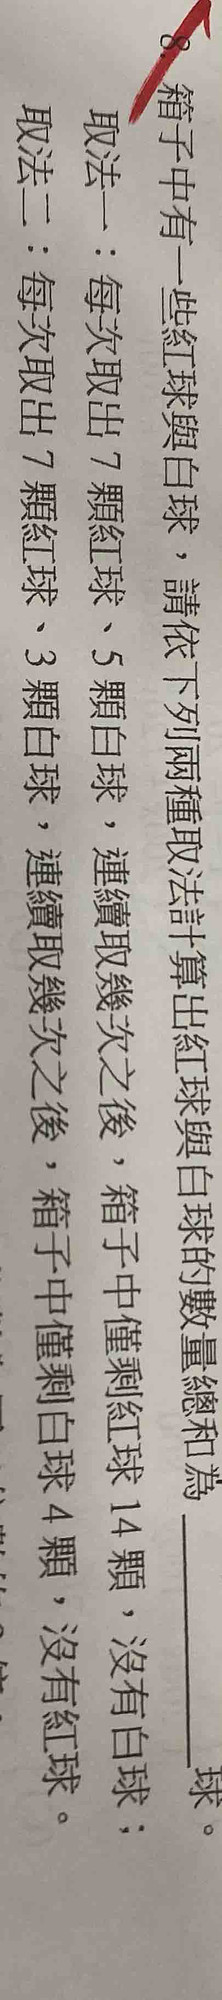 8. 箱子中有一些紅球與白球，請依下列兩種取法計算出紅球與白球的數量總和為________球。
取法一：每次取出 7 顆紅球、5 顆白球，連續取幾次之後，箱子中僅剩紅球 14 顆，沒有白球；
取法二：每次取出 7 顆紅球、3 顆白球，連續取幾次之後，箱子中僅剩白球 4 顆，沒有紅球。